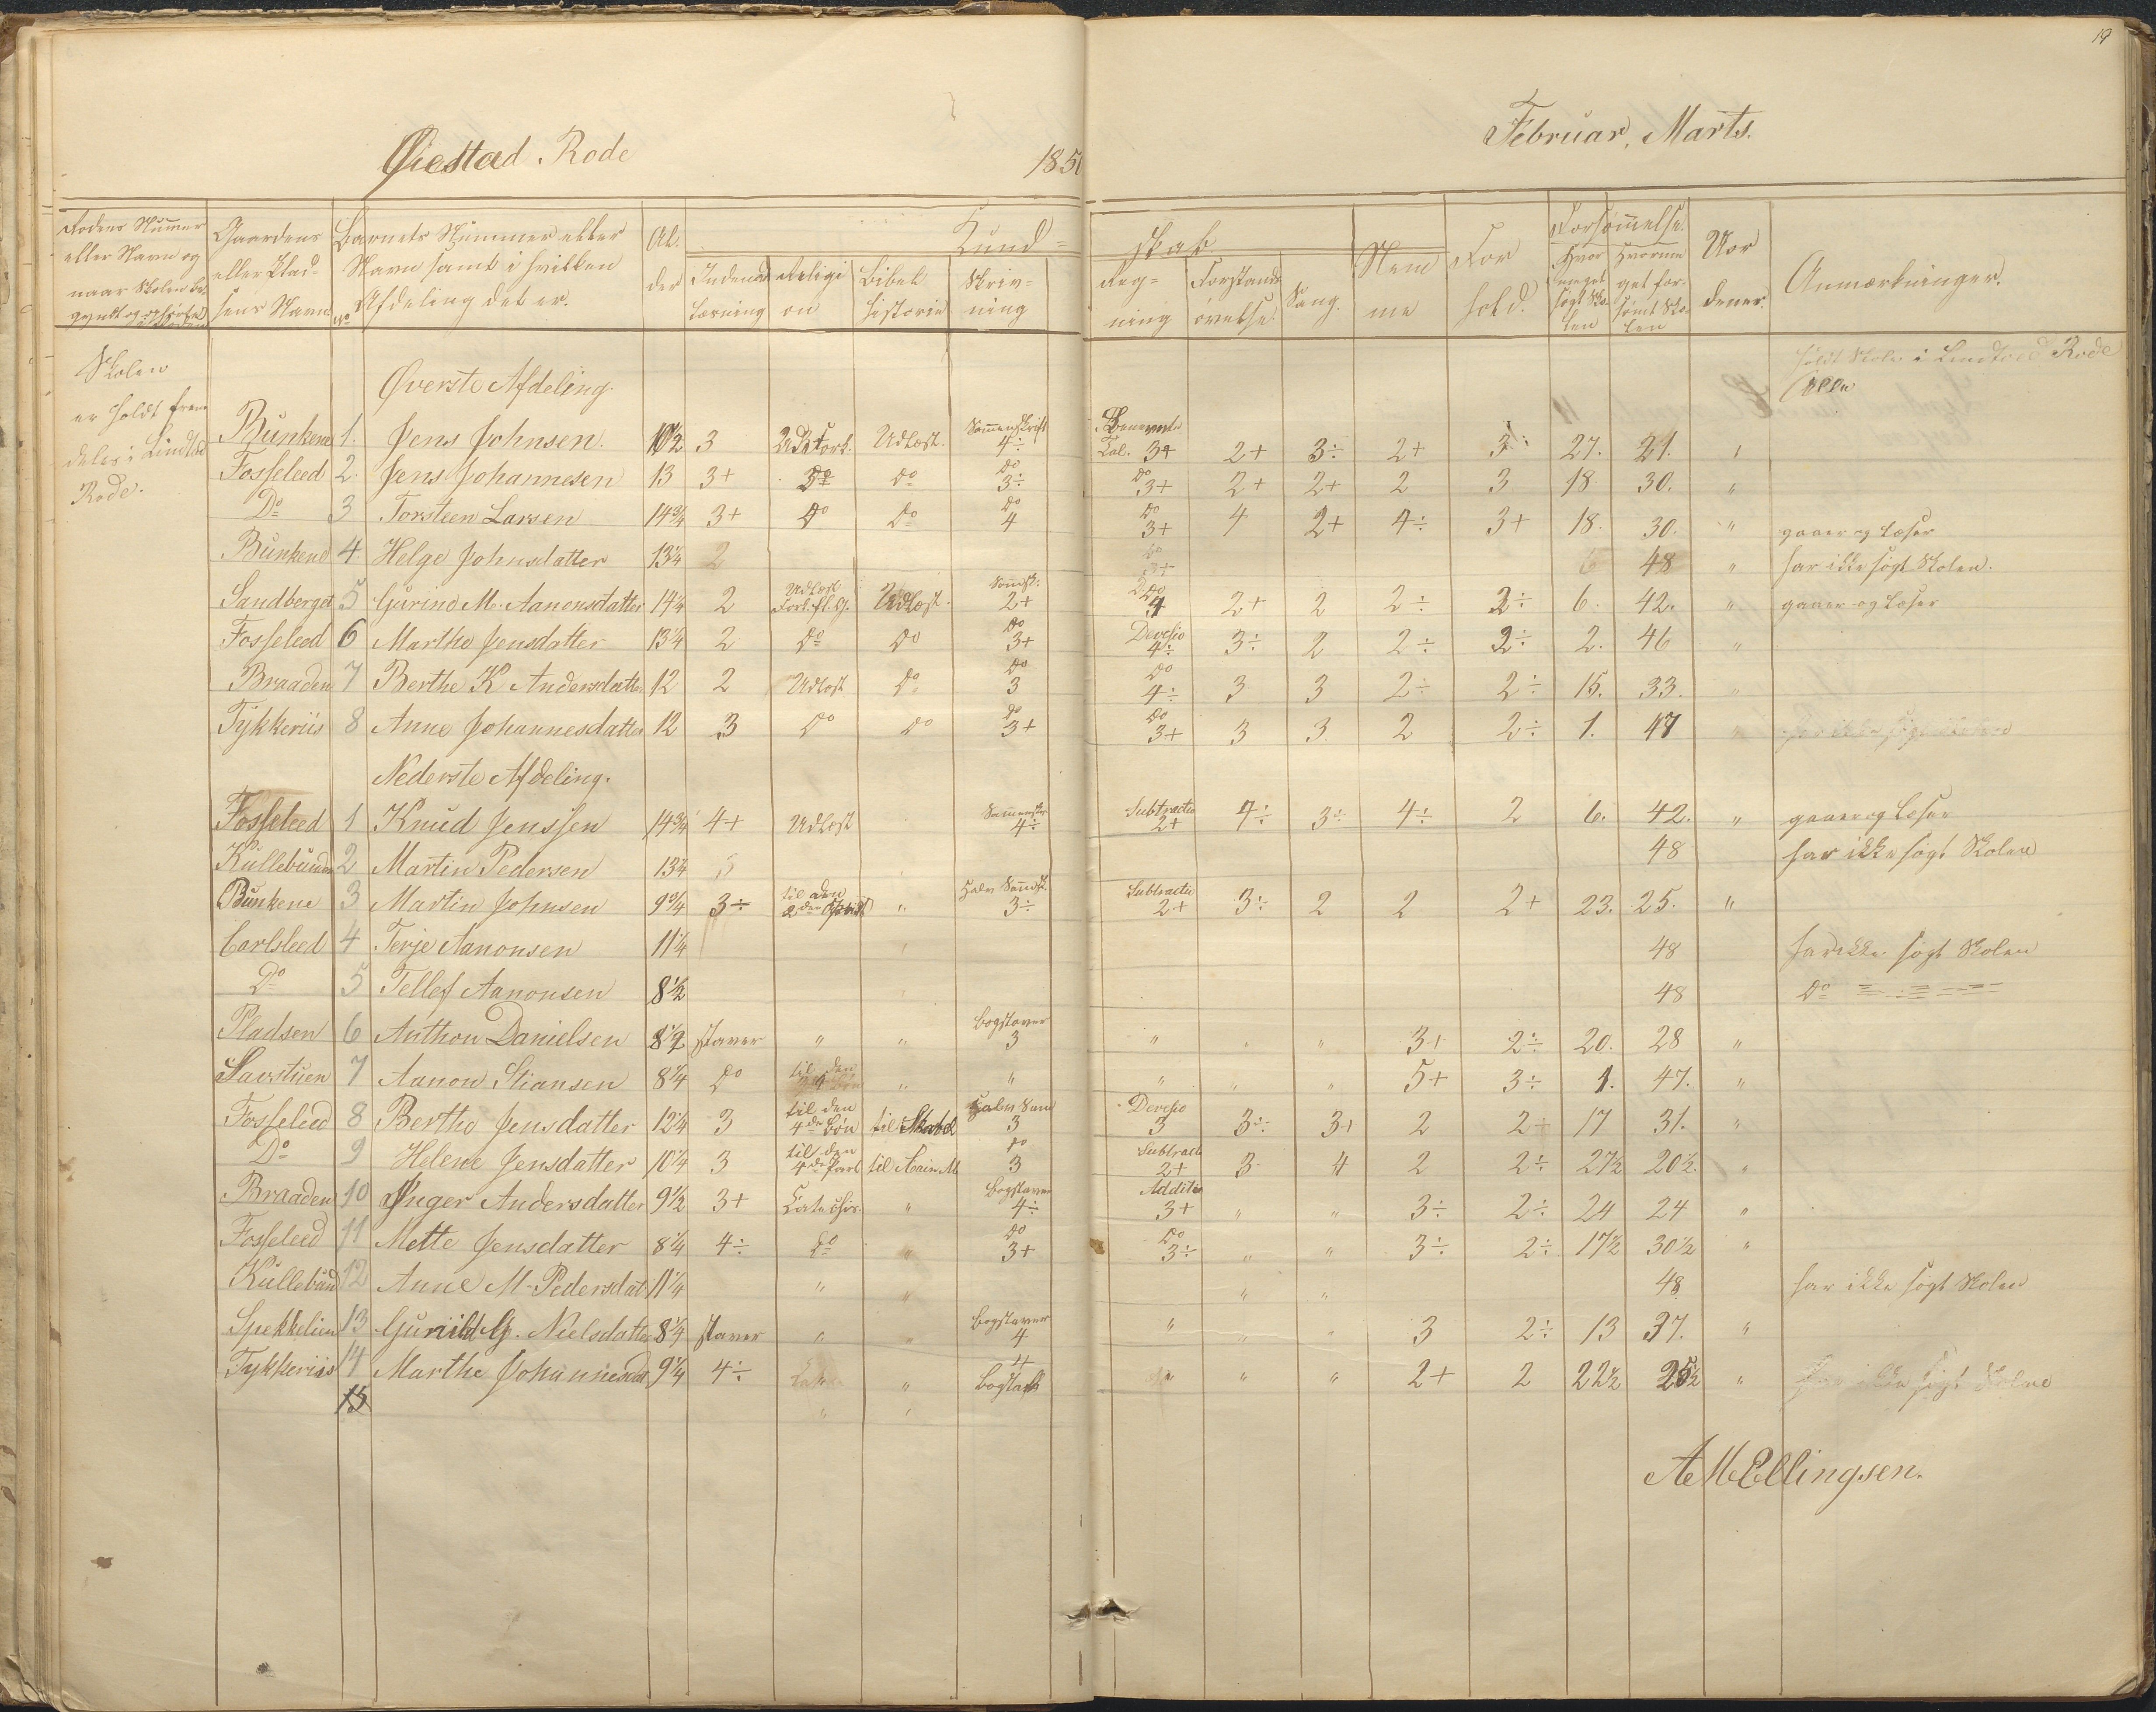 19
Øiestad Rode
185
Februar, Marts.
Rodens Nummer eller Navn og naar Skolen be- gyndt og ophørt
Gaardens eller Plad- sens Navn
No
Barnets Nummer eller Navn samt i hvilken Afdeling det er.
Al- der
Kund= skab
Indenad Læsning
Religi on
Bibel historie
Skriv- ning
Reg- ning
Forstands øvelse
Sang.
Nem me
For hold.
Forsømmelse.
Hvor meget søgt Sko- len
Hvorme get for- sømt Sko- len
Uor dener
Anmærkninger.
Skolen er holdt frem deles i Rode.
holdt Skole i Rode
Øverste Afdeling.
Bunkene 1. Jens Johnsen. 10½ 3 Udlæst. Sammenskrift 4÷ Tal. 3+ 2+ 3÷ 2+ 3÷ 27. 21. "
Fosseleed 2. Jens Johannesen 13 3+ Do Do Do 3÷ Do 3+ 2+ 2+ 2 3 18 30. "
Do 3 Torsteen Larsen 14¾ 3+ Do Do Do 4 Do 3+ 4 2+ 4÷ 3+ 18. 30. " gaaer og læser
Bunkene 4. Helge Johnsdatter 13¼ 48 " har ikke søgt Skolen.
Sandberget 5 Gurine M. Aanensdatter 14¼ 2 Udlæst Udlæst. 2+ 4 2+ 2 2÷ 2÷ 6. 42. " gaaer og læser
Fosseleed 6 Marthe Jensdatter 13¼ 2 Do Do Do 3+ Devesio 4÷ 3÷ 2 2÷ 2÷ 2. 46 "
Braaden 7 Berthe K Andersdatter 12 2 Udlæst Do Do 3 Do 4÷ 3 3 2÷ 2÷ 15. 33. "
Tykkeriis 8 Anne Johannesdatter 12 3 Do Do Do 3+ Do 3+ 3 3 2 2÷ 1. 47 "
Nederste Afdeling.
Fosseleed 1 Knud Jenssen 14¾ 4+ Udlæst 4÷ Subtractio 2+ 4÷ 3÷ 4÷ 2 6. 42. " gaaer og læser
2 Martin Pedersen 13¼ 48 har ikke søgt Skolen
Bunkene 3 Martin Johnsen 9¾ 3÷ til den " 3÷ Subtractio 2+ 3÷ 2 2 2+ 23. 25. "
Carlsleed 4 Terje Aanonsen 11¼ 48 har ikke søgt Skolen
Do 5 Tellef Aanonsen 8½ 48 Do
Pladsen 6 Anthon Danielsen 8½ staver " " Bogstaver 3 " " " 3+ 2÷ 20. 28 "
7 Aanon Stiansen 8¼ Do til den " " " " " 5+ 3÷ 1. 47. "
Fosseleed 8 Berthe Jensdatter 12¼ 3 til den 4de Bøn til 3 Devesio 3 3÷ 3+ 2 2+ 17 31. "
Do 9 Helene Jensdatter 10¼ 3 til den 4de til Do 3 Subtract 2+ 3 4 2 2÷ 27½ 20½. "
Braaden 10 Inger Andersdatter 9½ 3+ " Bogstaver 4÷ Additio 3+ " " 3÷ 2÷ 24 24 "
Fosseleed 11 Mette Jensdatter 8¼ 4÷ Do " Do 3+ Do 3÷ " " 3÷ 2÷ 17½ 30½ "
12 Anne M. Pedersdat 11¼ " " " " 48 har ikke søgt Skolen
Spekkelien 13 Gunild G. Nielsdatter 8¼ staver " " Bogstaver 4 " " " 3 2÷ 13 37. "
Tykkeriis 14 Marthe Johannesdat 9¼ 4÷ " " 4 Bogstav " " " 2+ 2 22½ 25½ " har ikke søgt Skolen
15 " "
A M Ellingsen.